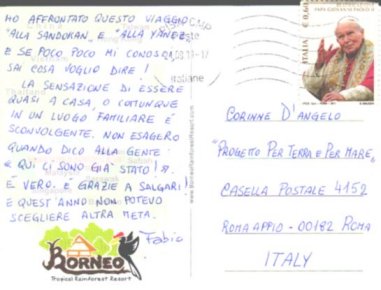 HO AFFRONTATO QUESTO VIAGGIO
"ALLA SANDOKAN" E "ALLA YANEZ"
E SE POCO POCO MI CONOSCI,
SAI COSA VOGLIO DIRE!
LA SENSAZIONE DI ESSERE
QUASI A CASA, O COMUNQUE
IN UN LUOGO FAMILIARE È
SCONVOLGENTE. NON ESAGERO
QUANDO DICO ALLA GENTE:
« QUI CI SONO GIÀ STATO! ».
È VERO. E GRAZIE A SALGARI!
E QUEST'ANNO NON POTEVO
SCEGLIERE ALTRA META.
Fabio
BORNEO
Tropical Rainforest Resort
www.BorneoRainforestResort.com
Italiane
ITALIA
PAPA GIOVANNI PAOLO II
CORINNE D'ANGELO
"PROGETTO PER TERRA E PER MARE"
CASELLA POSTALE 4152
ROMA APPIO - 00182 ROMA
ITALY